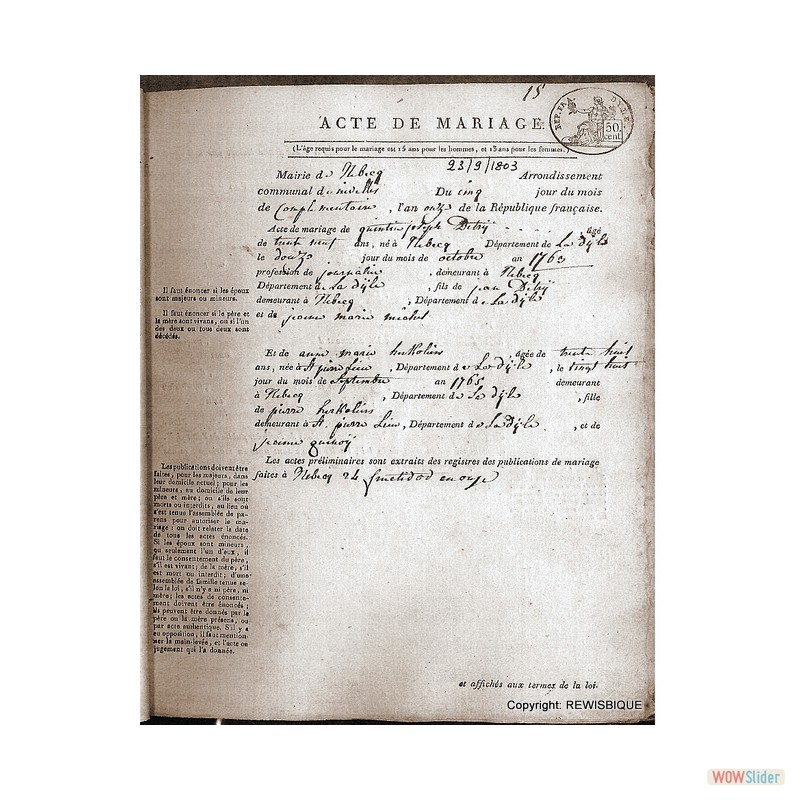 15
ACTE DE MARIAGE.
REP. FRA.
DYLE
50
cent.
(L'âge requis pour le mariage est 15 ans pour les hommes, et 13 ans pour les femmes.)
23/9/1803
Mairie de Rebecq Arrondissement
communal de nivelles Du cinq jour du mois
de Complementaire, l'an onze de la République française.
Acte de mariage de quintin joseph Detrij âgé
de trente neuf ans, né à Rebecq Département de La dyle
le douze jour du mois de octobre an 1763
profession de journalier, demeurant à Rebecq
Département de La dyle, fils de jean Detrij
demeurant à Rebecq, Département de La dyle
et de jeanne marie michel
Il faut énoncer si les époux
sont majeurs ou mineurs.
Il faut énoncer si le père et
la mère sont vivans, ou si l'un
des deux ou tous deux sont
décédés.
Et de anne marie herkolins âgée de trente huit
ans, née à St pierre Lieu, Département de La dyle, le vingt huit
jour du mois de septembre an 1765 demeurant
à Rebecq, Département de La dyle, fille
de pierre herkolins
demeurant à St. pierre Lieu, Département de La Dyle, et de
jeanne
Les actes préliminaires sont extraits des registres des publications de mariage
faites à Rebecq 24 fructidor an onze
Les publications doivent être
faites, pour les majeurs, dans
leur domicile actuel; pour les
mineurs, au domicile de leur
père et mère; ou s'ils sont
morts ou interdits, au lieu où
s'est tenue l'assemblée de pa-
rens pour autoriser le ma-
riage: on doit relater la date
de tous les actes énoncés.
Si les époux sont mineurs,
ou seulement l'un d'eux, il
faut le consentement du père,
s'il est vivant; de la mère, s'il
est mort ou interdit; d'une
assemblée de famille tenue se-
lon la loi, s'il n'y a ni père, ni
mère; les actes de consente-
ment doivent être énoncés;
ils peuvent être donnés par le
père ou la mère présens, ou
par acte authentique. S'il y a
eu opposition, il faut mention-
ner la main-levée, et l'acte ou
jugement qui l'a donnée.
et affichés aux termes de la loi.
Copyright: REWISBIQUE
WOWSlider